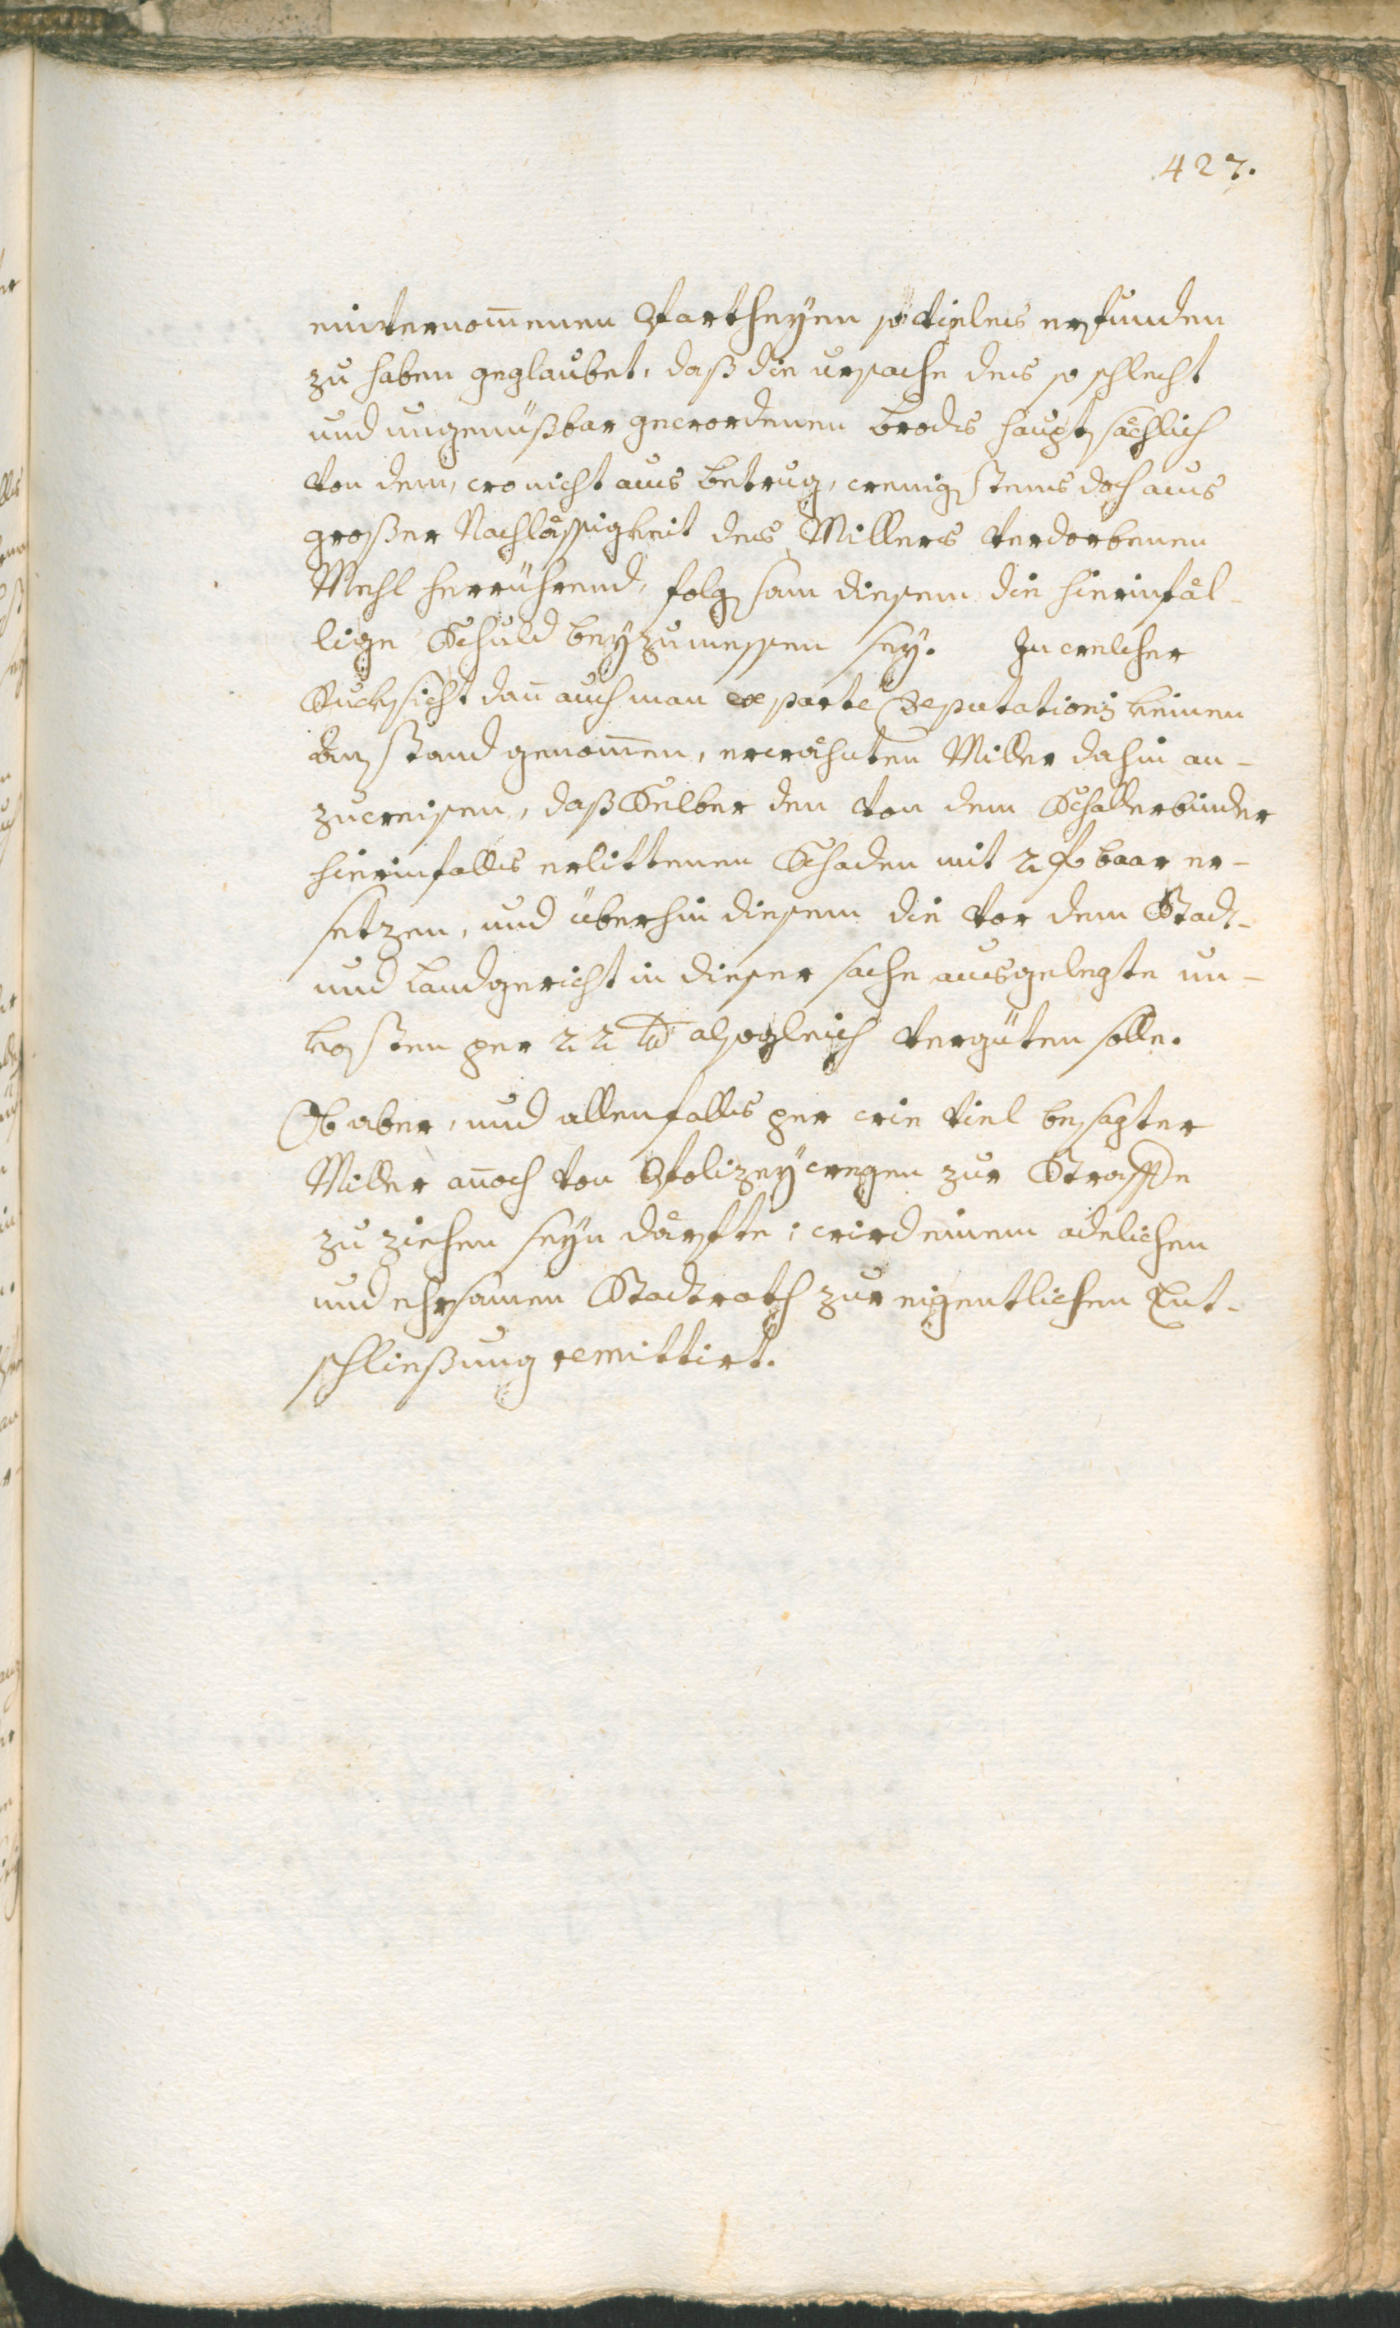 427.
einvernom̅enen Partheyen so vieles erfunden
zu haben geglaubet, daß die ursache des so schlecht
und ungenüßbar gewordenen brodts hauptsächlich
von dem, wo nicht aus betrug, wenigstens doch aus
großer Nachlässigkeit des Millers verdorbenen
Mehl herrührend, folgsam diesem die hierinfäl-
lige Schuld beyzumessen sey. In welcher
Rucksicht dan̅ auch man ex parte Deputationis keinen
Anstand genom̅en, erwähnten Miller dahin an-
zuweisen, daß Selber den von dem Schallerbinder
hierinfalls erlittenen Schaden mit 2 f baar er-
setzen, und überhin diesem die vor dem Stadt-
und Landgericht in dieser sache ausgelegte un-
kosten per 22 xr alsogleich vergüten solle.
Ob aber, und allenfalls per wie viel besagter
Miller an̅och von Polizeywegen zur Straffe
zu ziehen seyn därfte; wird einem adelichen
und ehrsamen Stadtrath zur eigentlichen Ent-
schließung remittirt.